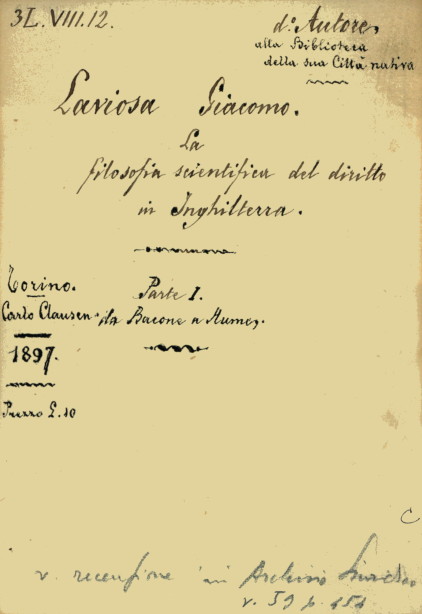 3L.VIII.12.
d.º Autore,
alla Biblioteca
della sua Città nativa
Laviosa Giacomo.
La
filosofia scientifica del diritto
in Inghilterra.
Torino.
Carlo Clausen
1897.
Prezzo L. 10
Parte I.
da Bacone a Hume.
C
v. recensione in Archivio
v. 59 p.